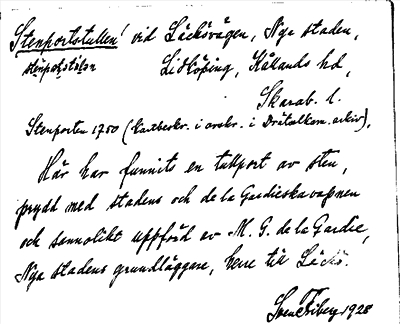 Stenportstullen! vid Läcksvägen, Nya staden,
stenpo͟rtstu͟len Lidköping, Kållands hd,
Skarab. l.
Stenporten 1750 (kartbeskr. i avskr. i Drätselkam. arkiv).
Här har funnits en tullport av sten,
prydd med stadens och de la Gardieska vapnen
och sannolikt uppförd av M. G. de la Gardie,
Nya stadens grundläggare, herre till Läckö.
Sven Friberg 1928